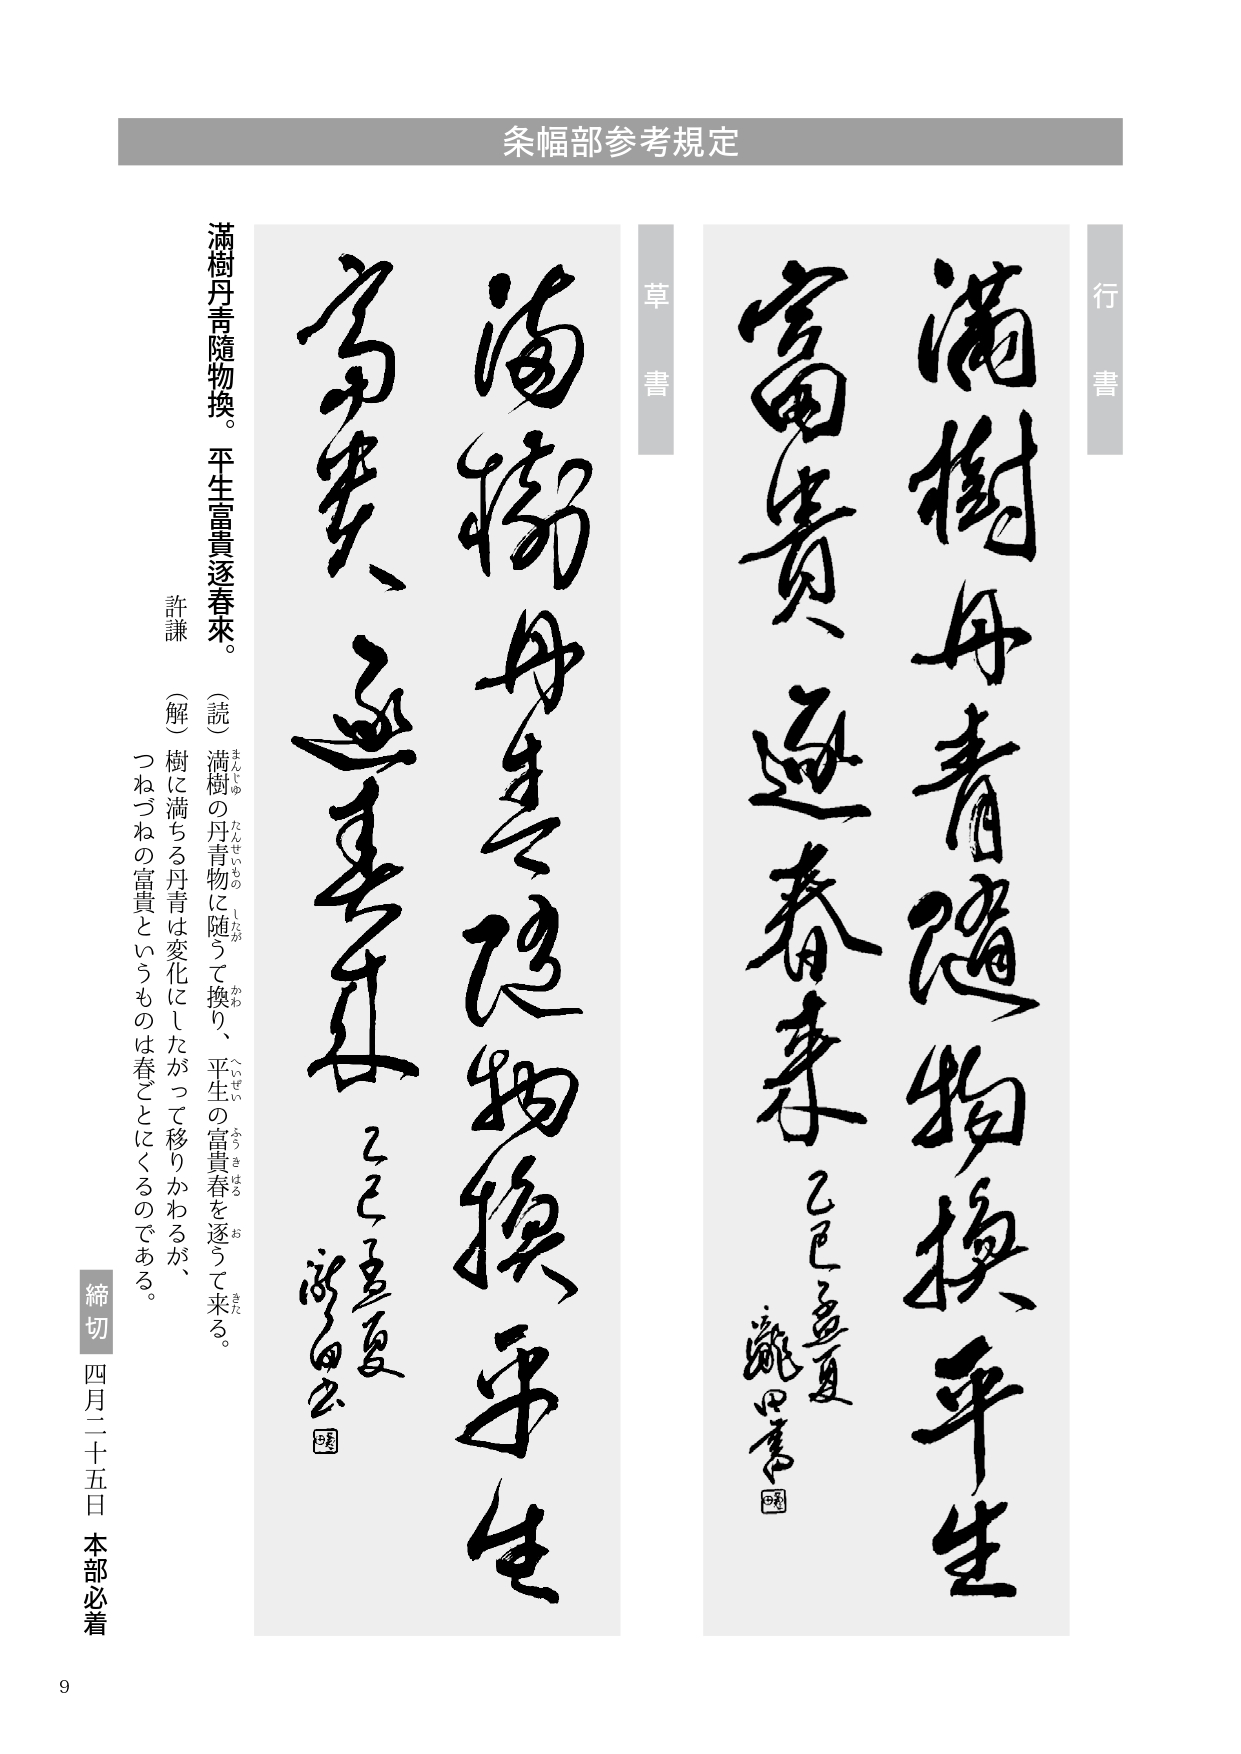 条幅部参考規定
行書
満樹丹青隨物換平生
富貴逐春来
乙巳孟夏
瀧田書
草書
満樹丹青隨物換平生
富貴逐春来
乙巳孟夏
瀧田書
滿樹丹靑隨物換。平生富貴逐春來。
許謙
（読）満樹の丹青物に随うて換り、平生の富貴春を逐うて来る。
まんじゅ たんせいもの したが かわ へいぜい ふうきはる お きた
（解）樹に満ちる丹青は変化にしたがって移りかわるが、
つねづねの富貴というものは春ごとにくるのである。
締切 四月二十五日 本部必着
9